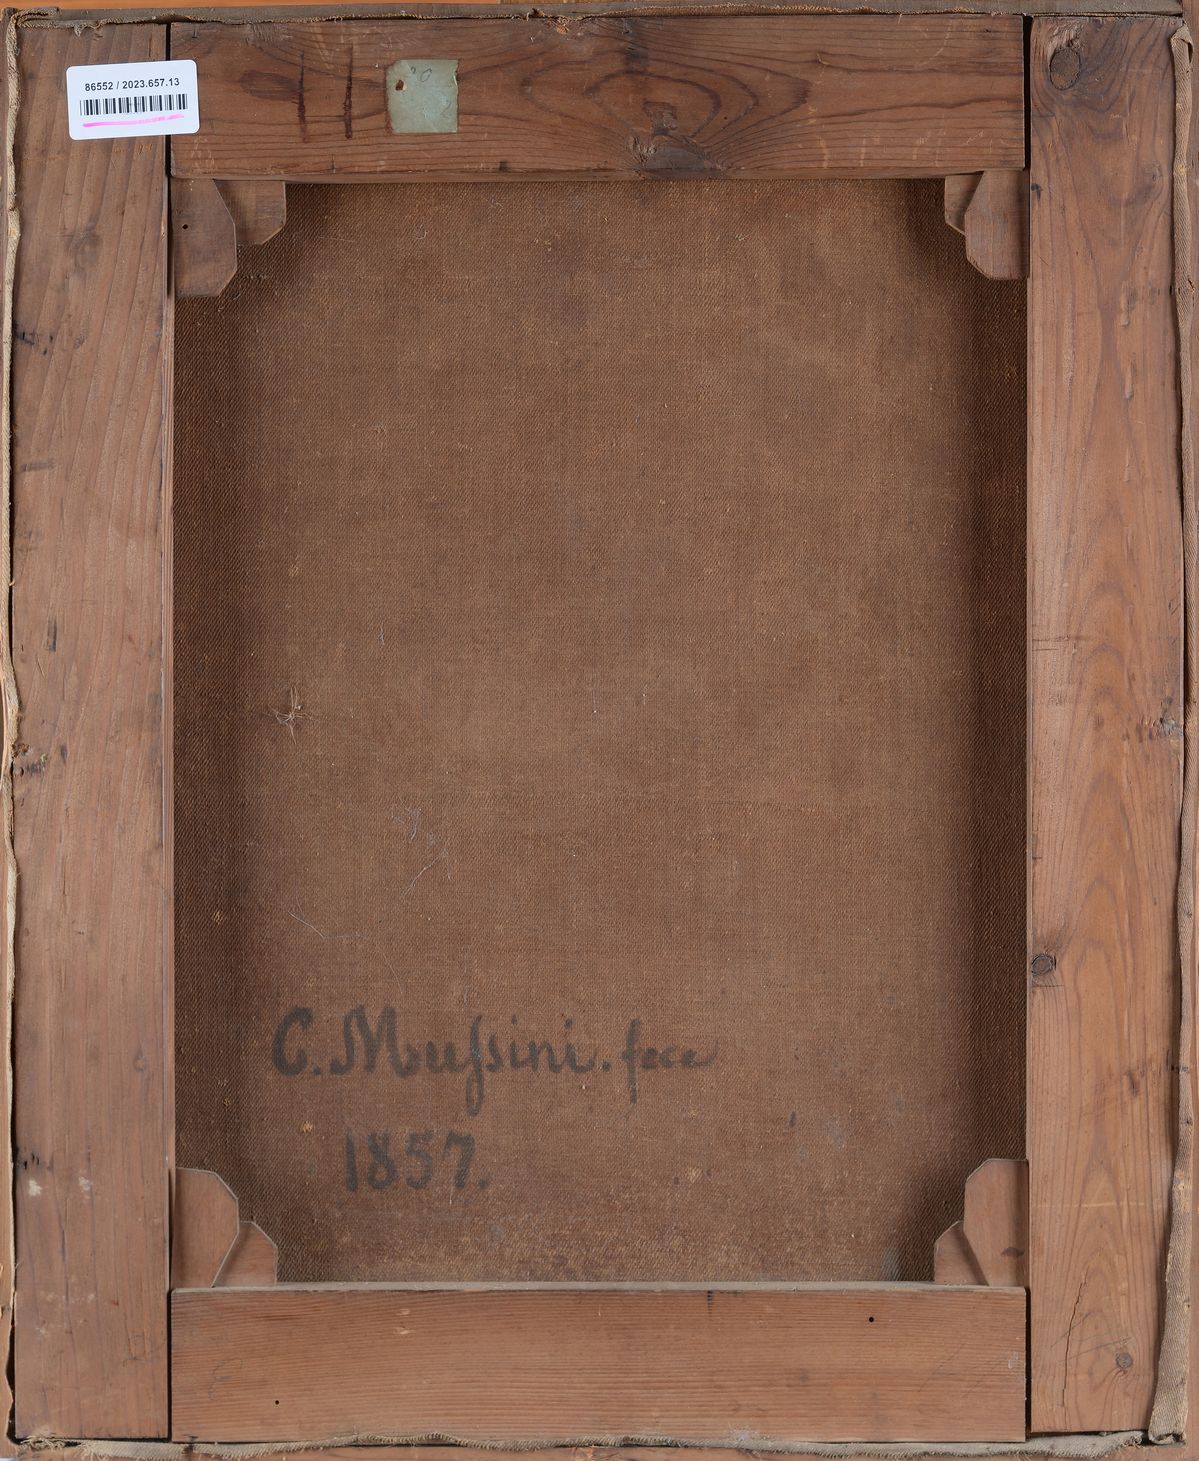 86552 / 2023.657.13
C. Muſsini. fece
1857.